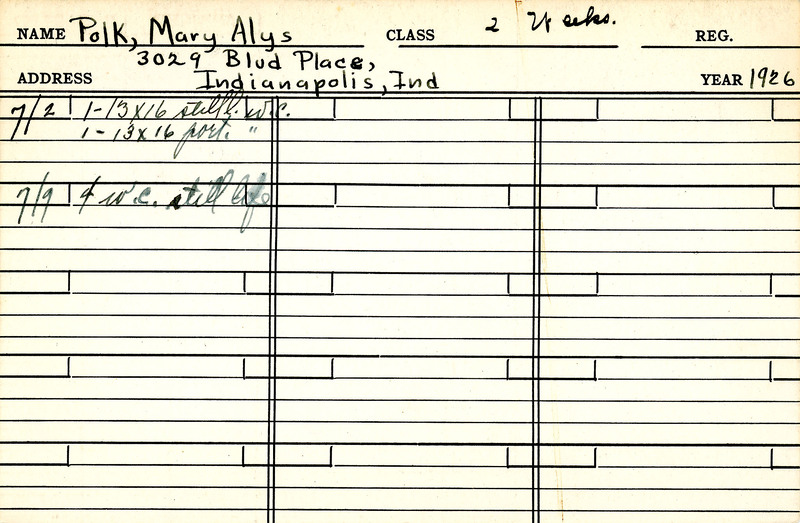 NAME Polk, Mary Alys CLASS 2 Weeks. REG.
3029 Blvd Place,
ADDRESS Indianapolis, Ind YEAR 1926
7/2 1-13x16 still l. w.c.
1-13x16 port. "
7/9 4 w.c. still life